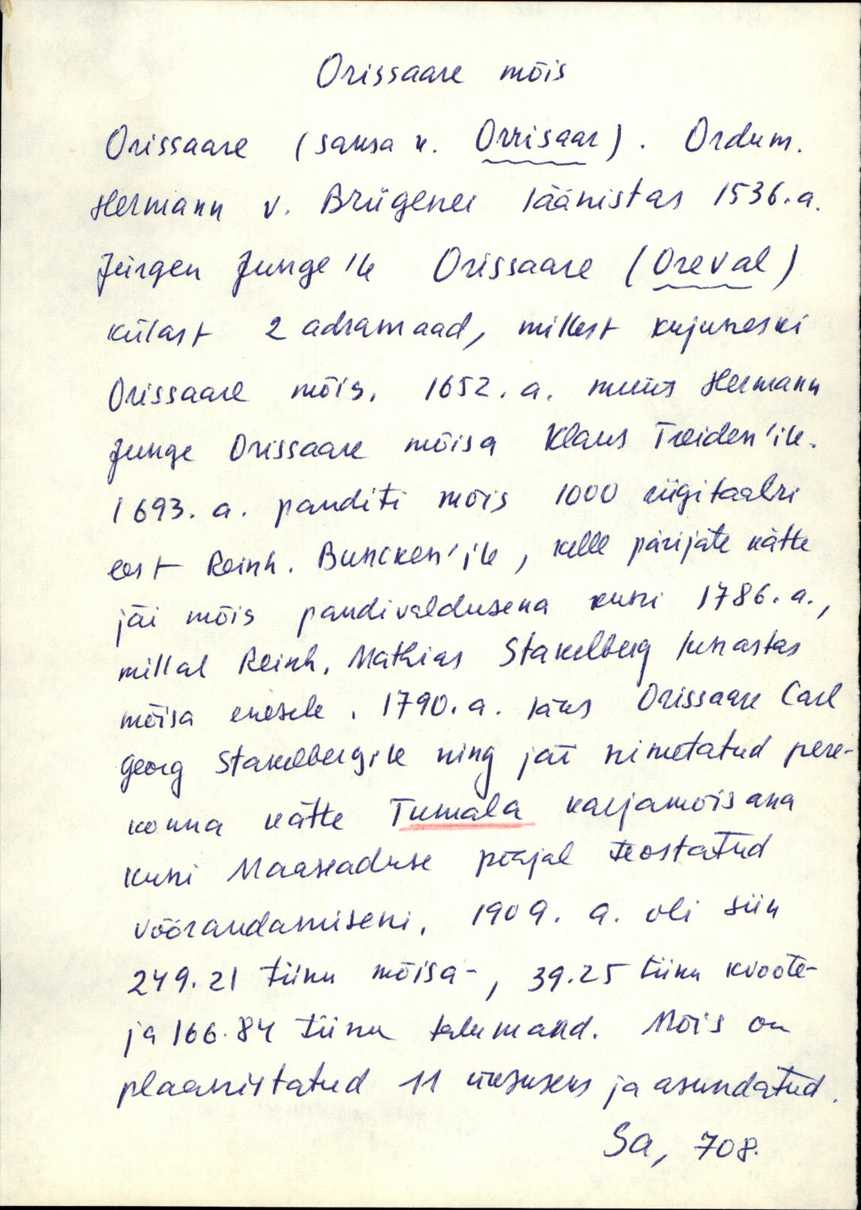 Orissaare mõis
Orissaare (saksa k. Orrisaar). Ordum.
Hermann v. Brügenei läänistas 1536.a.
Jürgen Junge'le Orissaare (Oreval)
külast 2 adramaad, millest kujuneski
Orissaare mõis. 1652.a. müüs Hermann
Junge Orissaare mõisa Klaus Treiden'ile.
1693.a. panditi mõis 1000 riigitaalri
eest Reinh. Buncken'ile, kelle pärijate kätte
jäi mõis pandivaldusena kuni 1786.a.,
millal Reinh. Mathias Stakelberg lunastas
mõisa enesele. 1790.a. läks Orissaare Carl
Georg Stakelbergile ning jäi nimetatud pere-
konna kätte Tumala karjamõisana
kuni Maaseaduse põhjal teostatud
võõrandamiseni. 1909.a. oli siin
249.21 tiinu mõisa-, 39.25 tiinu kvoote-
ja 166.84 tiinu talumaad. Mõis on
plaanistatud 11 üksuseks ja asundatud.
Sa, 708.